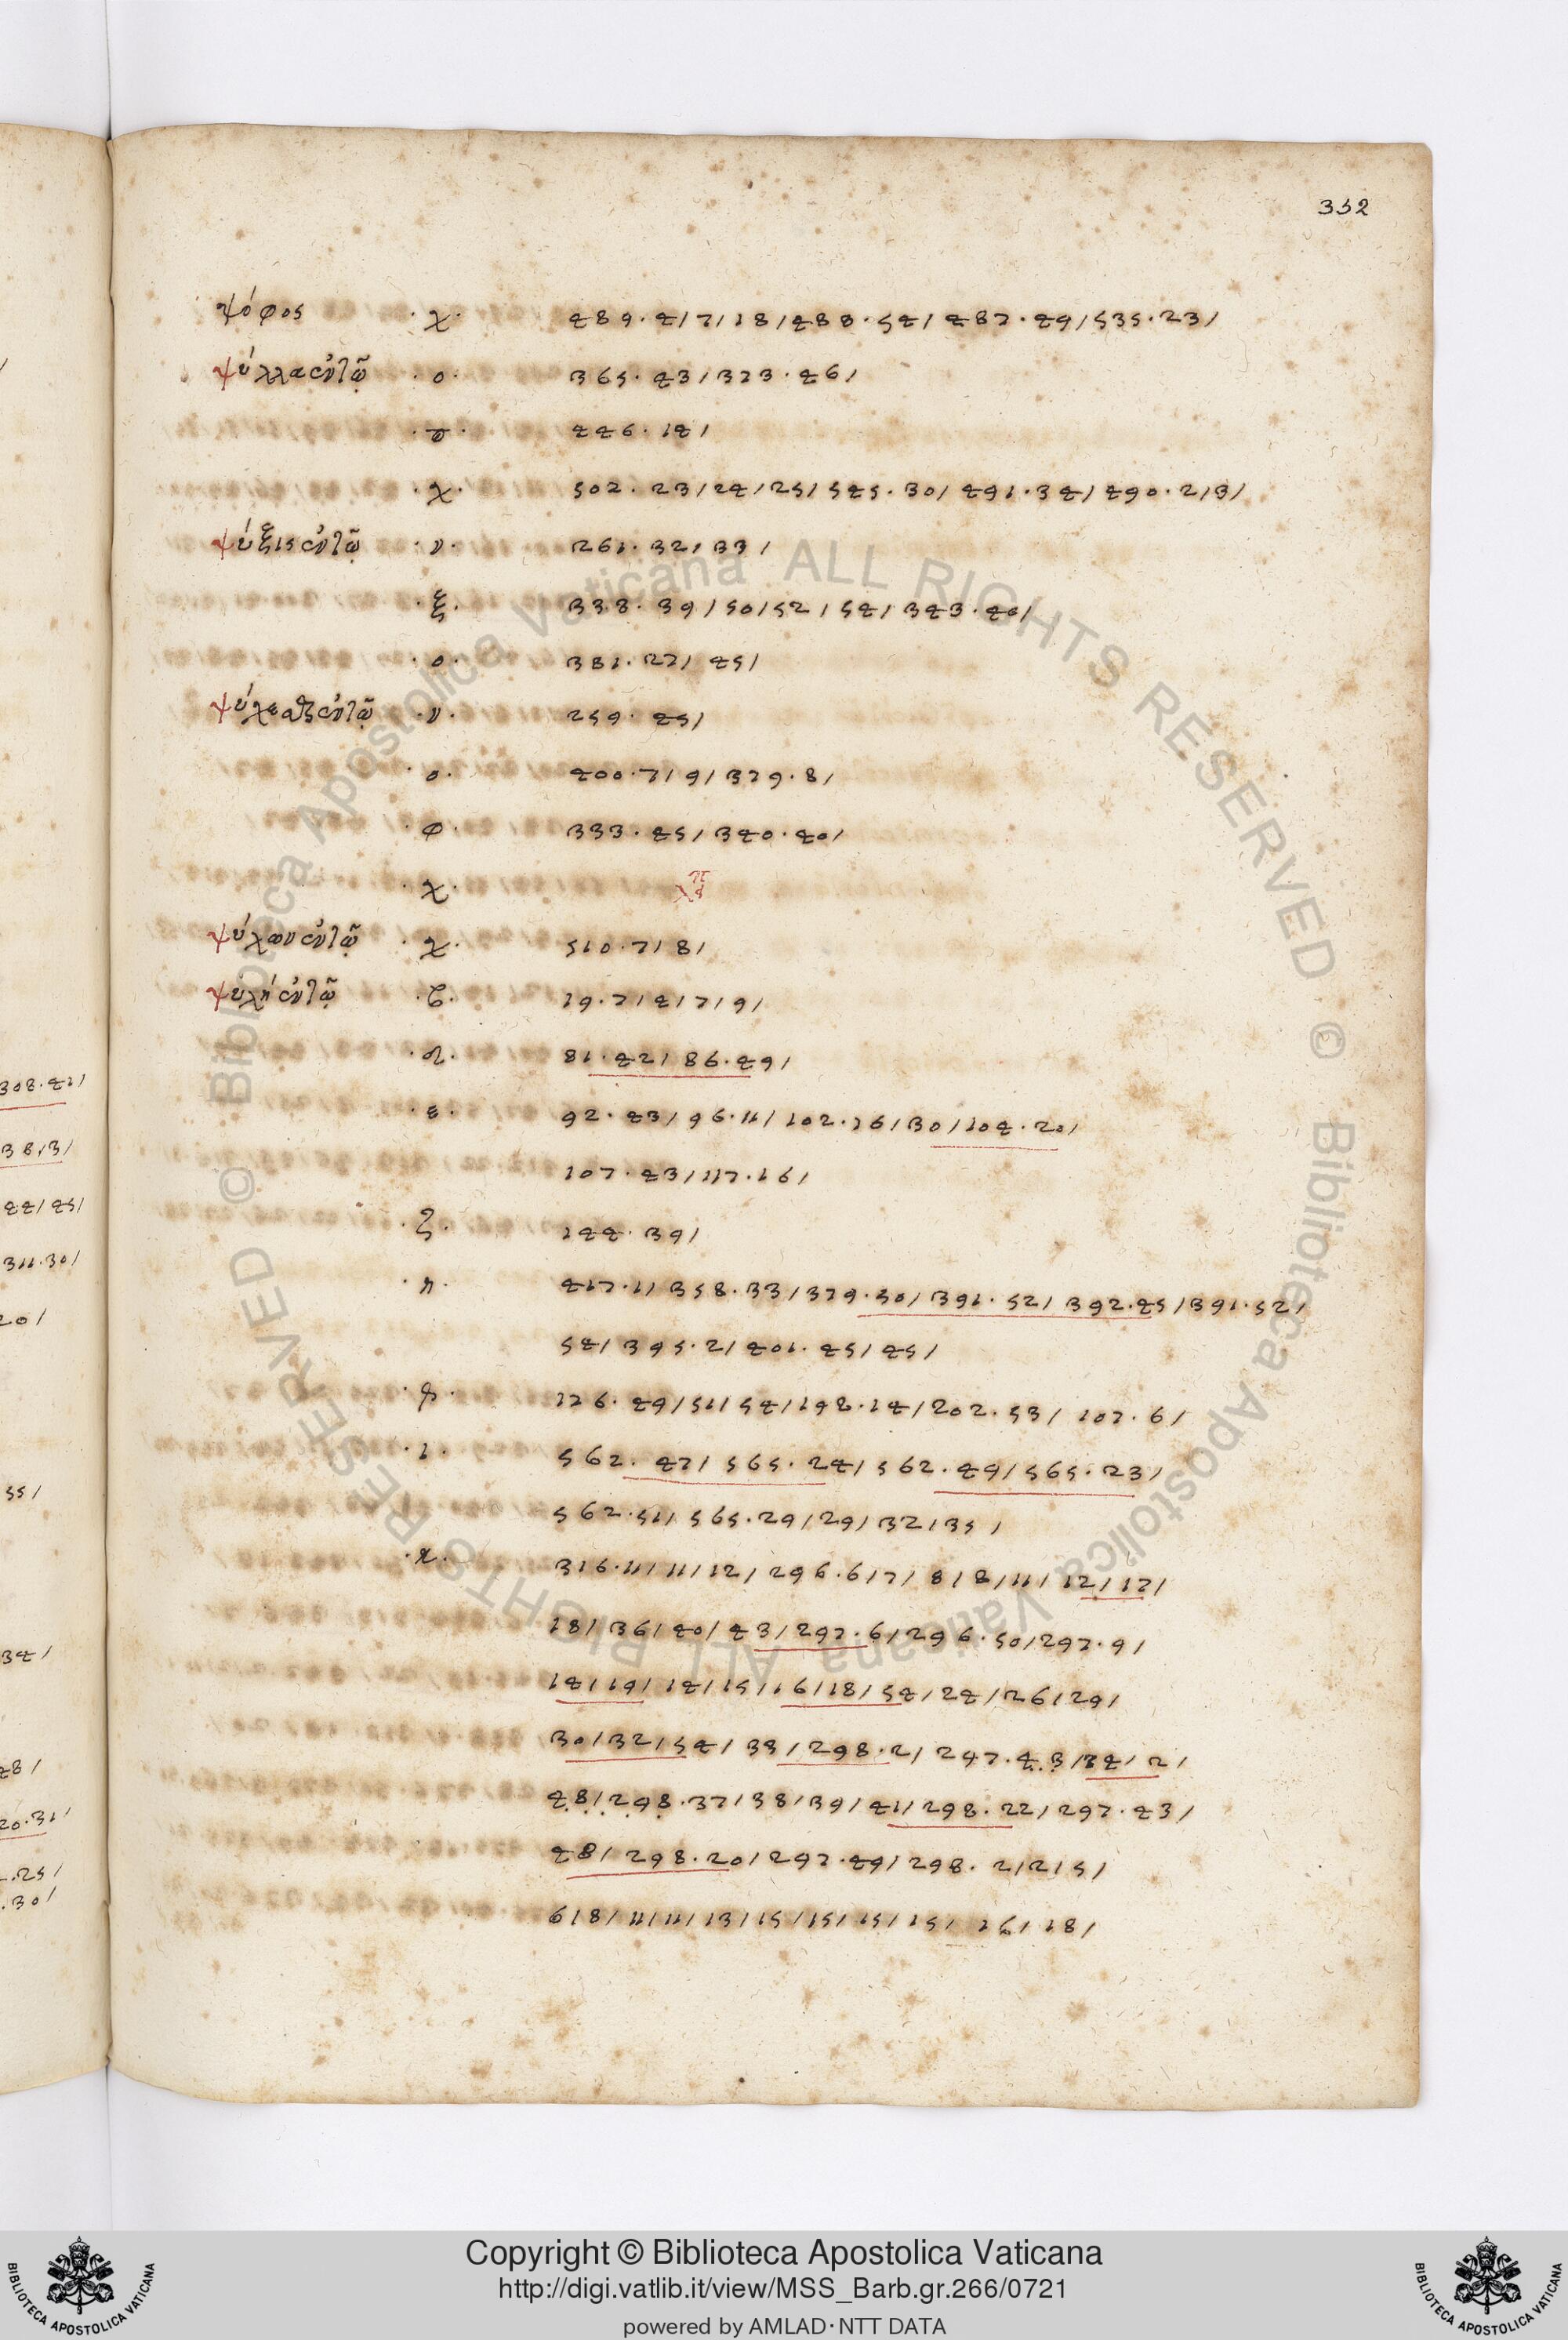 352
ψόφος ·χ· 489·4/7/18/488·54/487·49/535·23/
ψύλλα ἐν τῶ ·ο· 365·43/373·46/
·π· 446·14/
·χ· 502·23/24/25/545·30/491·34/490·2/3/
ψύξις ἐν τῶ ·ν· 261·32/33/
·ξ· 338·39/50/52/54/343·40/
·ο· 381·27/45/
ψύχεσθαι ἐν τῶ ·ν· 259·45/
·ο· 400·7/9/379·8/
·φ· 333·45/340·40/
·χ·
ψύχων ἐν τῶ ·χ· 510·7/8/
ψυχὴ ἐν τῶ 19·7/4/7/9/
·δ· 81·42/86·49/
·ε· 92·43/96·11/102·26/30/104·20/
107·43/117·16/
·ζ· 144·39/
·η· 417·1/358·33/379·50/391·52/392·45/391·52/
54/395·2/401·45/45/
·θ· 176·49/51/54/198·14/202·53/107·6/
·ι· 562·47/565·24/562·49/565·23/
562·51/565·29/29/32/35/
·κ· 316·11/11/12/296·6/7/8/8/11/12/17/
18/36/40/43/297·6/296·50/297·9/
14/19/14/15/16/18/54/24/26/29/
30/32/54/33/298·2/247·43/34/2/
48/298·37/38/39/41/298·22/297·43/
48/298·20/297·49/298·2/2/5/
6/8/11/11/13/15/15/15/15/16/18/
308·41/
38/3/
44/45/
311·30/
20/
55/
34/
48/
20·31/
·25/
·30/
Copyright © Biblioteca Apostolica Vaticana
http://digi.vatlib.it/view/MSS_Barb.gr.266/0721
powered by AMLAD·NTT DATA
BIBLIOTECA APOSTOLICA VATICANA
BIBLIOTECA APOSTOLICA VATICANA
© Biblioteca Apostolica Vaticana ALL RIGHTS RESERVED © Biblioteca Apostolica Vaticana ALL RIGHTS RESERVED